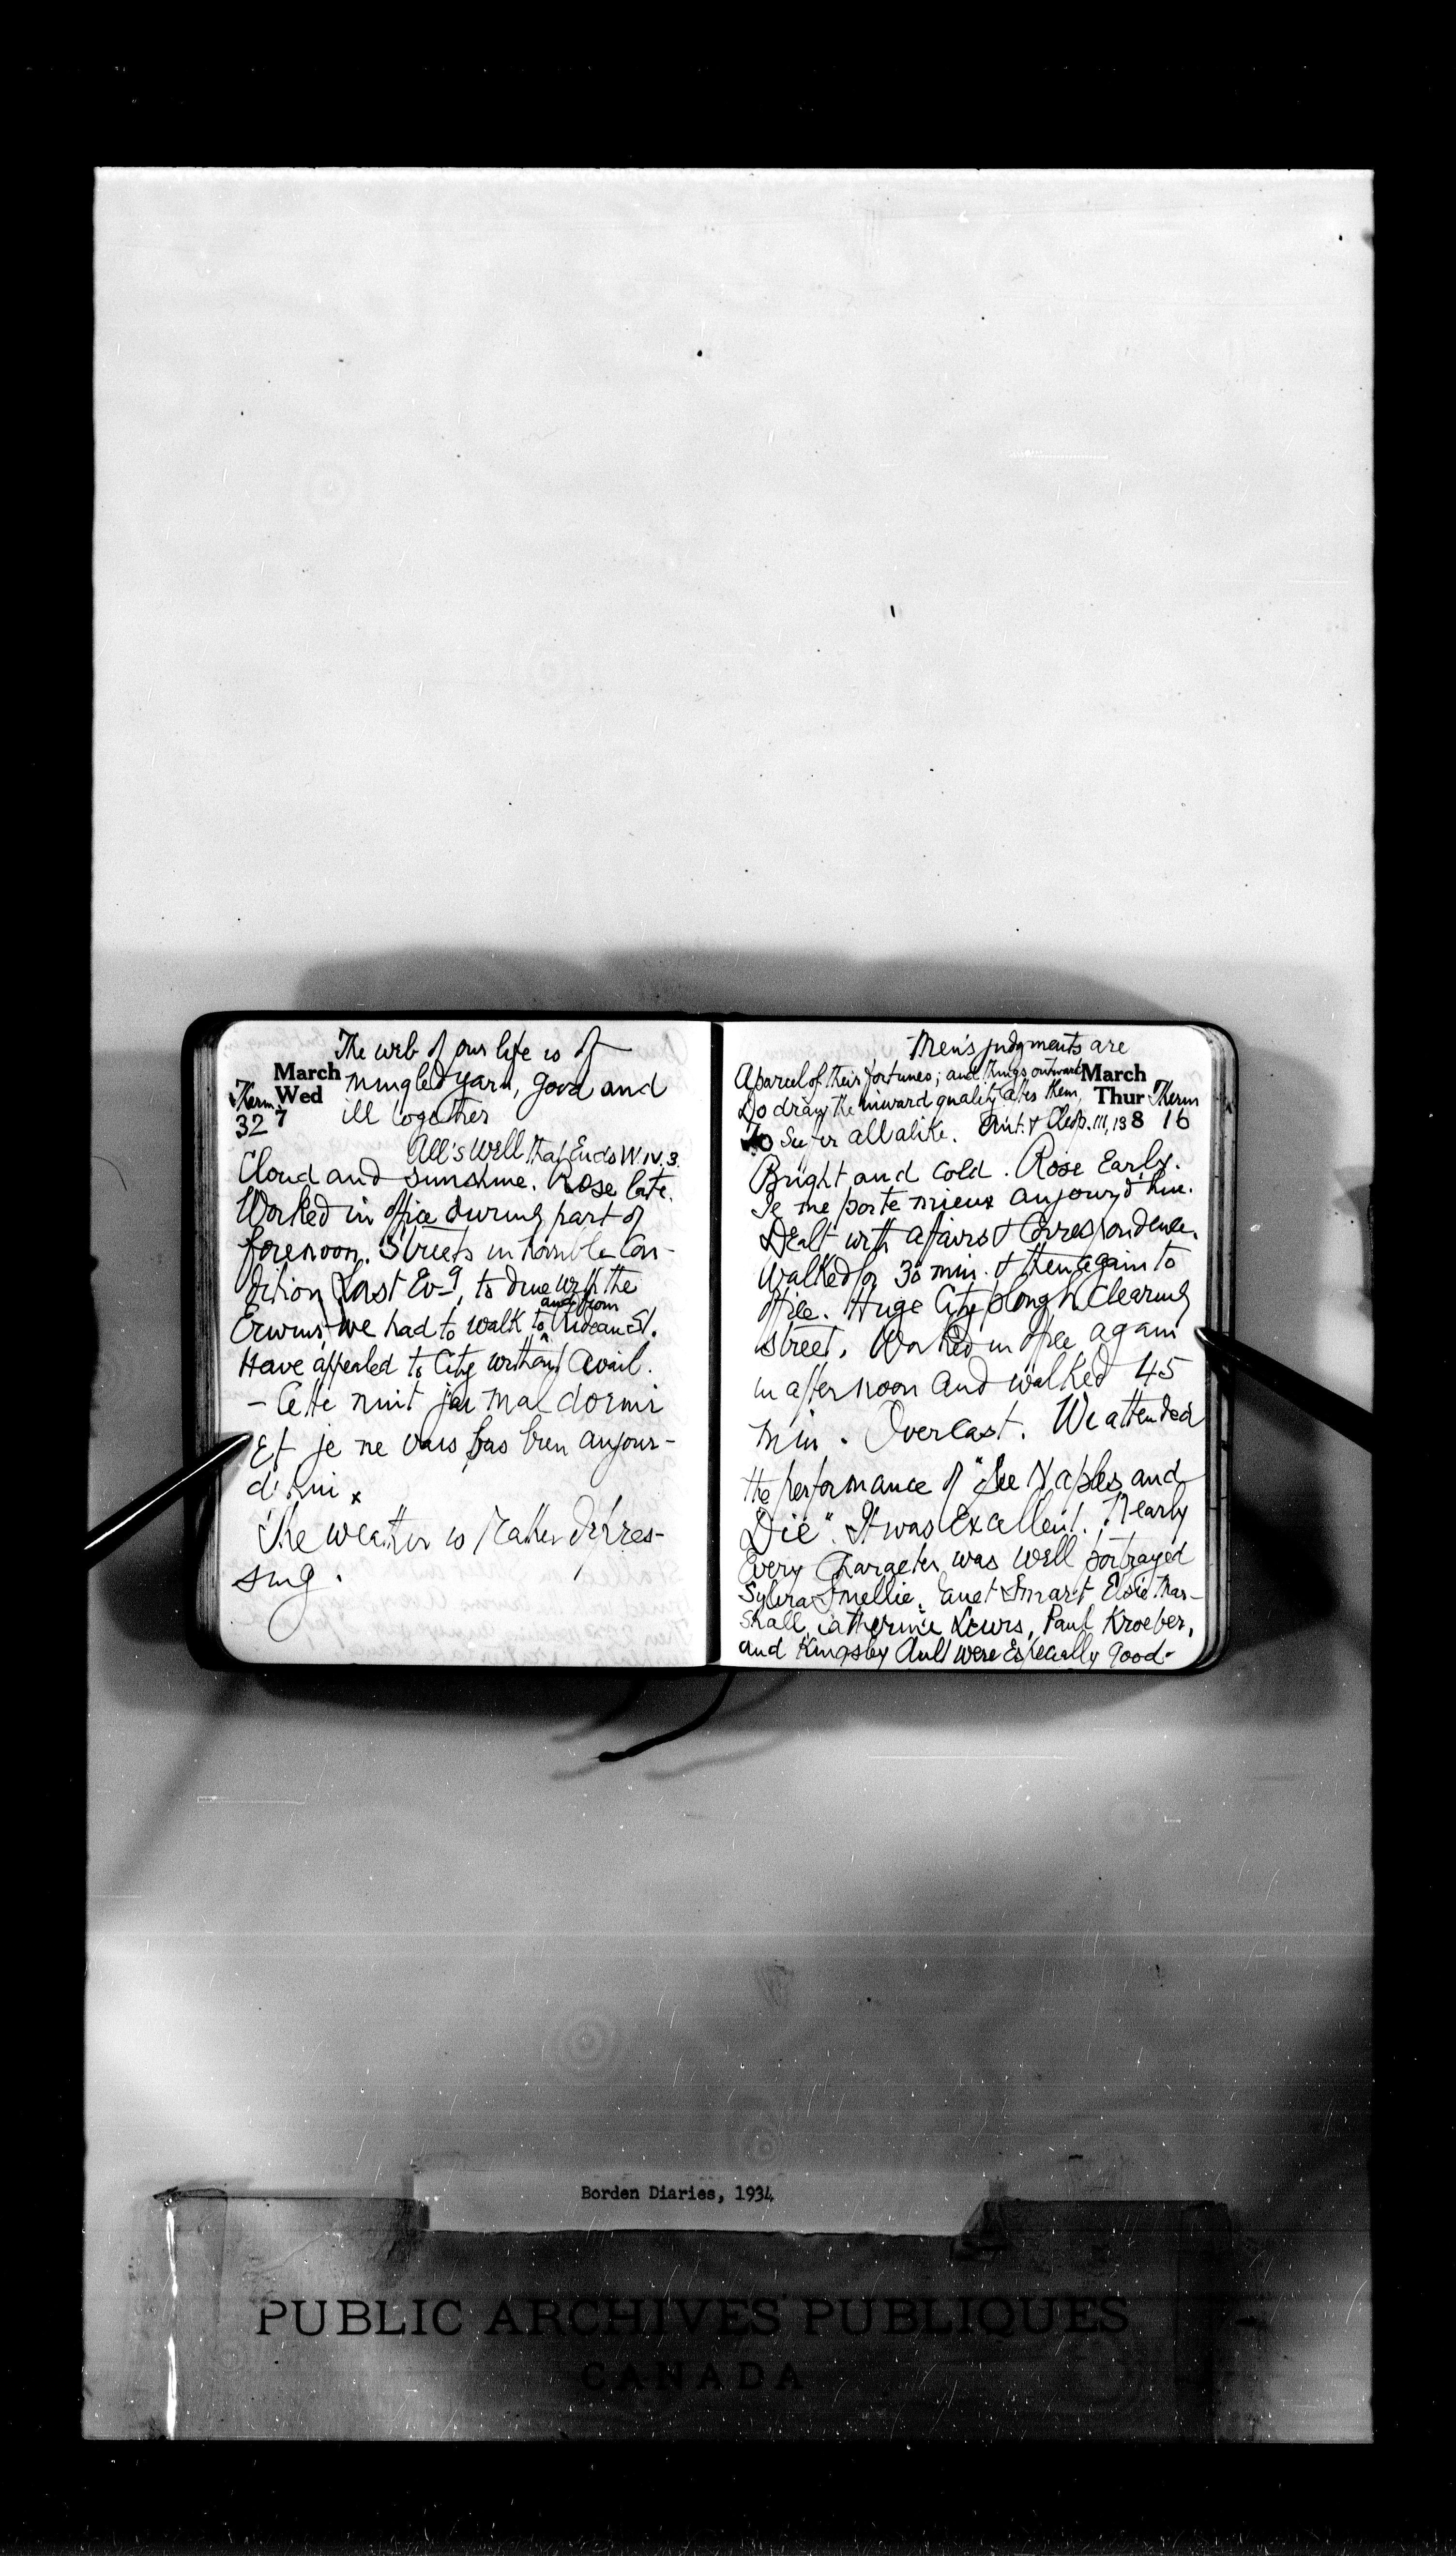 The web of our life is of
March
Wed
7
mingled yarn, good and
Therm
32
ill together
All's Well that Ends W IV.3.
Cloud and sunshine. Rose late.
Worked in office during part of
forenoon. Streets in horrible con-
dition Last Ev-g, to dine with the
and from
Erwins we had to walk to Rideau St.
Have appealed to City without avail.
- Cette nuit j'ai mal dormi
Et je ne vais pas bien aujour-
d'hui.
The weather is rather depres-
sing.
Men's judgments are
A parcel of their fortunes; and things outward
March
Thur
8
Therm
16
Do draw the inward quality after them,
To suffer all alike. Ant. & Cleop. III, 13
Bright and cold. Rose Early.
Je me porte mieux aujourd'hui.
Dealt with affairs & Correspondence.
Walked for 30 min. & then again to
office. Huge City plough clearing
street. Worked in office again
in afternoon and walked 45
min. Overcast. We attended
the performance of "See Naples and
Die". It was Excellent. Nearly
Every Character was well portrayed
Sylvia Smellie, anet Smart Elsie Mar-
shall, catherine Lewis, Paul Kroeber,
and Kingsley Ault were Especially good.
Borden Diaries, 1934
PUBLIC ARCHIVES PUBLIQUES
CANADA